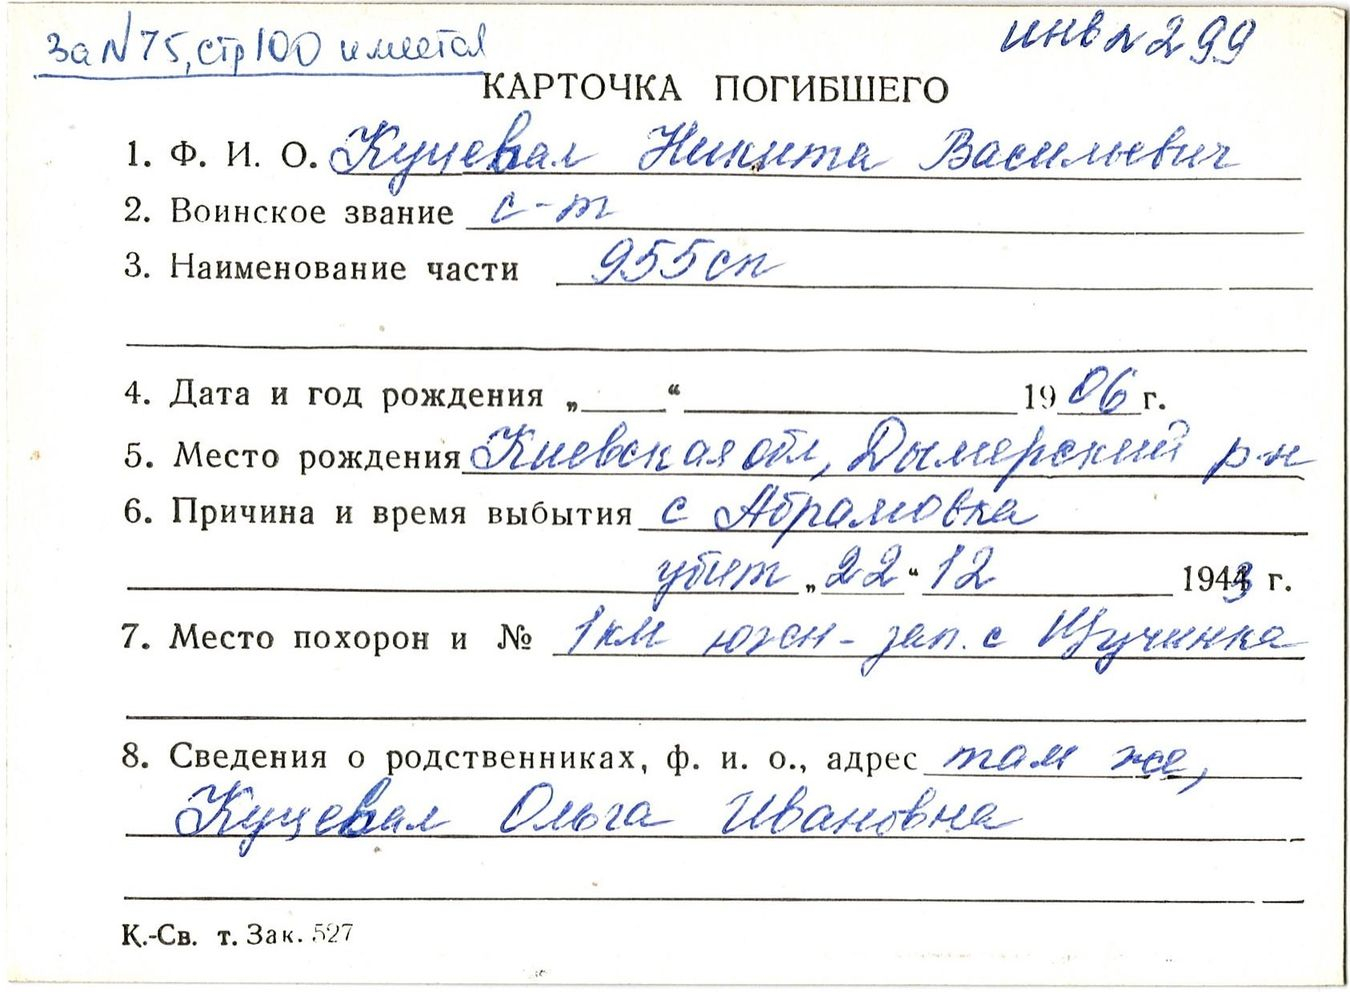 За N 75, стр 100 имеется
инв N 299
КАРТОЧКА ПОГИБШЕГО
1. Ф. И. О. Куцевал Никита Васильевич
2. Воинское звание с-т
3. Наименование части 955сп
4. Дата и год рождения „ “ 1906 г.
5. Место рождения Киевская обл, Дымерский р-н
6. Причина и время выбытия с Абрамовка
убит „22“ 12 1943 г.
7. Место похорон и № 1км южн-зап. с Щучинка
8. Сведения о родственниках, ф. и. о., адрес там же,
Куцевал Ольга Ивановна
К.-Св. т. Зак. 527